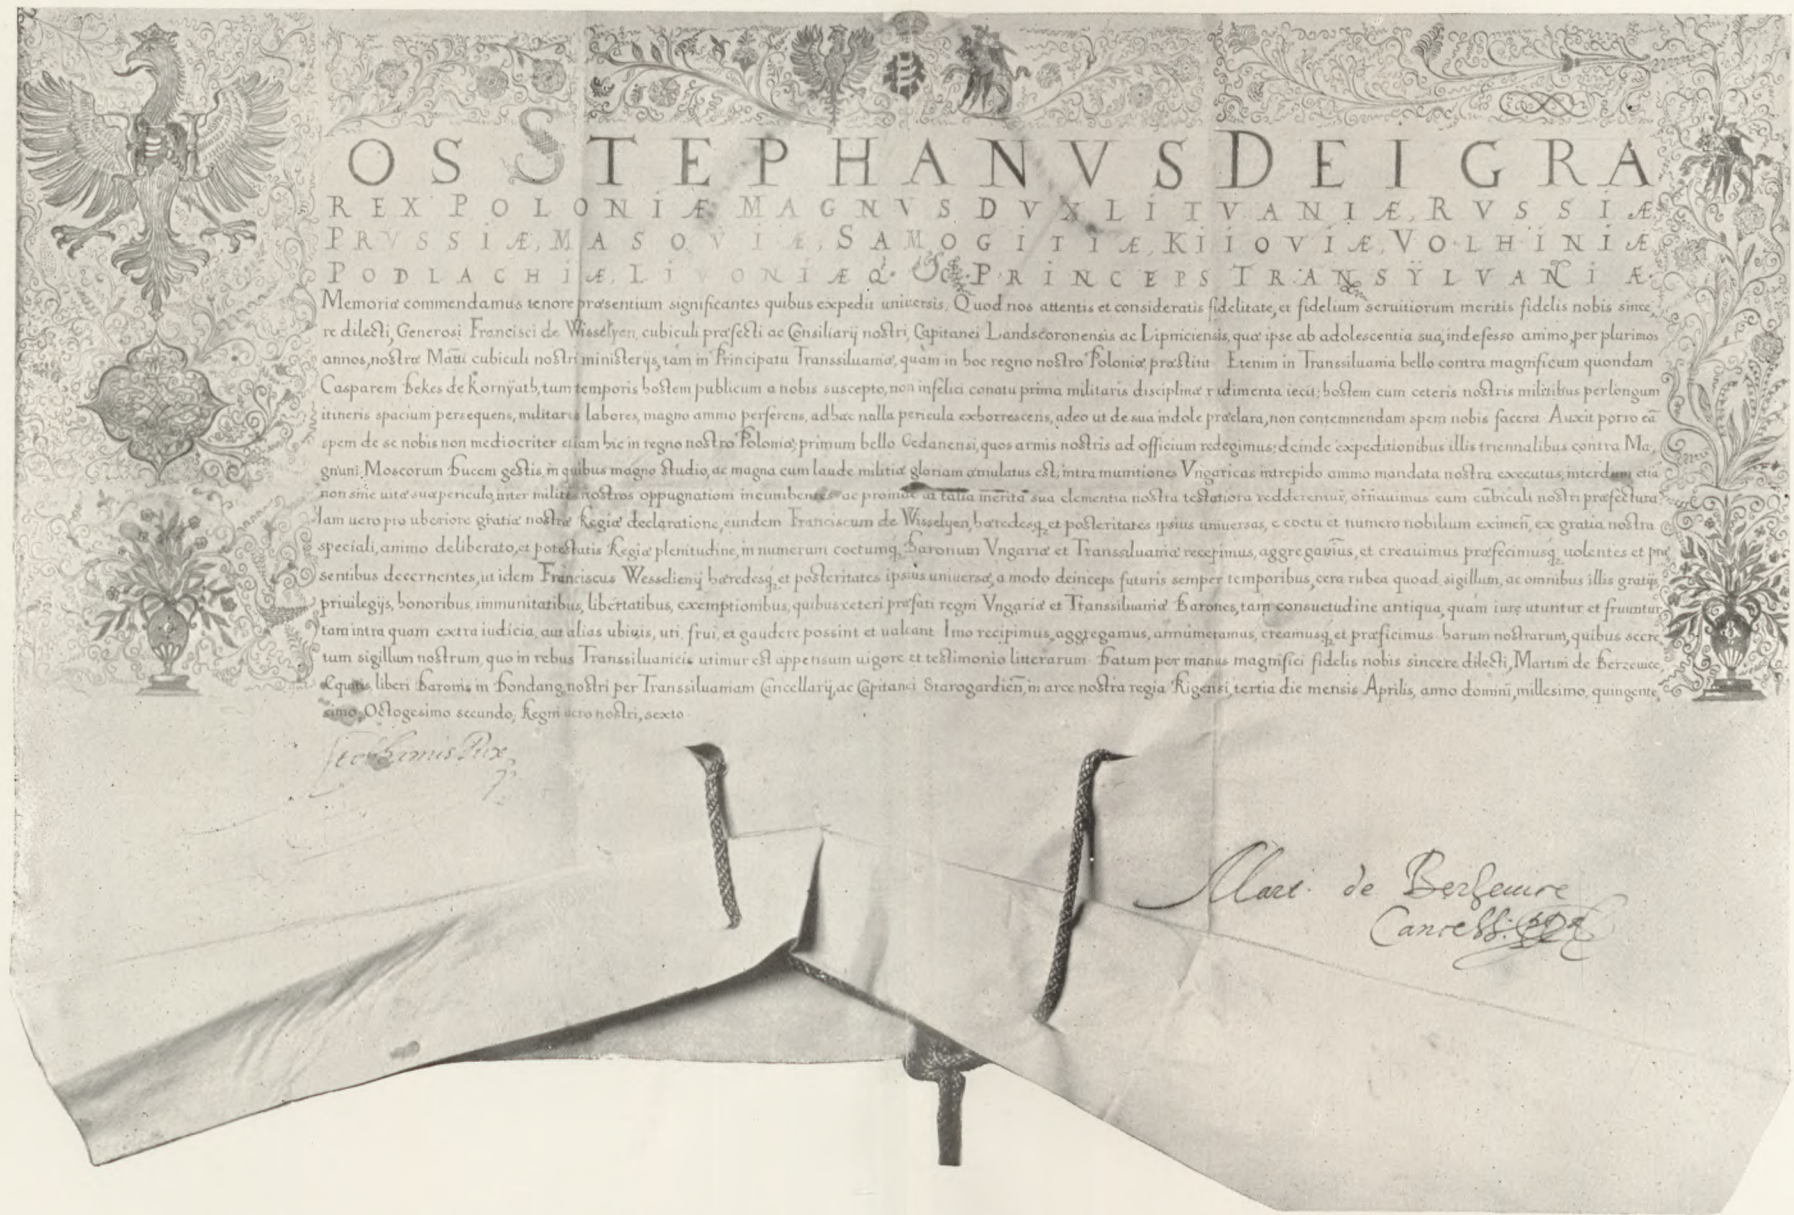 OS STEPHANVS DEI GRA
REX POLONIÆ MAGNVS DVX LITVANIÆ, RVSSIÆ
PRVSSIÆ, MASOVIÆ, SAMOGITIÆ, KIIOVIÆ, VOLHINIÆ
PODLACHIÆ, LIVONIÆQ. &c. PRINCEPS TRANSYLVANIÆ.
Memoriæ commendamus tenore præsentium significantes quibus expedit uniuersis, Quod nos attentis et consideratis fidelitate, et fidelium seruitiorum meritis fidelis nobis since,
re dilecti, Generosi Francisci de Wisselyen, cubiculi præfecti ac Consiliarij nostri, Capitanei Landscoronensis ac Lipniciensis, quæ ipse ab adolescentia sua, indefesso animo, per plurimos
annos, nostræ cubiculi nostri ministerijs, tam in Principatu Transsiluaniæ, quam in hoc regno nostro Poloniæ præstitit Etenim in Transiluania bello contra magnificum quondam
Casparem Bekes de Kornÿath, tum temporis hostem publicum a nobis suscepto, non infelici conatu prima militaris disciplinæ rudimenta iecit; hostem cum ceteris nostris militibus per longum
itineris spacium persequens, militares labores, magno animo perferens, ad hæc nulla pericula exhorrescens, adeo ut de sua indole præclara, non contemnendam spem nobis faceret Auxit porro eã
spem de se nobis non mediocriter etiam hic in regno nostro Poloniæ; primum bello Gedanensi, quos armis nostris ad officium redegimus; deinde expeditionibus illis triennalibus contra Ma,
gnum Moscorum Ducem gestis, in quibus magno studio, ac magna cum laude militiæ gloriam æmulatus est; intra munitiones Vngaricas intrepido animo mandata nostra executus, interdum etiã
non sine uitæ suæ periculo, inter milites nostros oppugnationi incumbentes ac proinde ut talia merita sua clementia nostra testatiora redderentur, ornauimus eum cubiculi nostri præfectura
Iam uero pro uberiore gratiæ nostræ Regiæ declaratione, eundem Franciscum de Wisselyen, hæredesq, et posteritates ipsius uniuersas, e coetu et numero nobilium eximen, ex gratia nostra
speciali, animo deliberato, et potestatis Regiæ plenitudine, in numerum coetumq, Baronum Vngariæ et Transsiluaniæ recepimus, aggregauimus, et creauimus præfecimusq, uolentes et præ
sentibus decernentes, ut idem Franciscus Wesselienÿ hæredesq, et posteritates ipsius uniuersæ, a modo deinceps futuris semper temporibus, cera rubea quoad sigillum, ac omnibus illis gratijs,
priuilegijs, honoribus, immunitatibus, libertatibus, exemptionibus, quibus ceteri præfati regni Vngariæ et Transsiluaniæ Barones, tam consuetudine antiqua, quam iure utuntur et fruuntur
tam intra quam extra iudicia, aut alias ubiuis, uti, frui, et gaudere possint et ualeant Imo recipimus, aggregamus, annumeramus, creamusq, et præficimus harum nostrarum, quibus secre,
tum sigillum nostrum, quo in rebus Transsiluanicis utimur est appensum uigore et testimonio litterarum. Datum per manus magnifici fidelis nobis sincere dilecti, Martini de Berzeuice,
Equitis, liberi Baronis in Bondang nostri per Transsiluaniam Cancellarij, ac Capitanei Starogardien, in arce nostra regia Rigensi, tertia die mensis Aprilis, anno domini, millesimo, quingente,
simo, Octogesimo secundo, Regni uero nostri, sexto.
Stephanus Rex
Mart. de Berzeuice
Cancell.